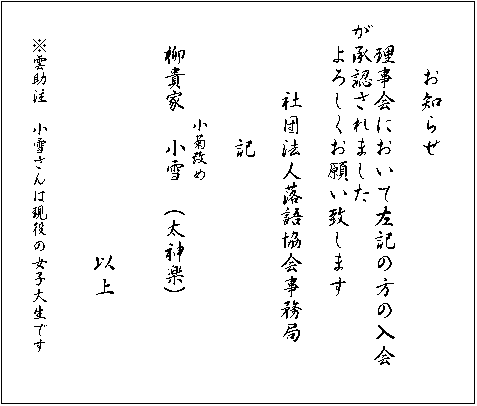 お知らせ
理事会において左記の方の入会
が承認されました
よろしくお願い致します
社団法人落語協会事務局
記
小菊改め
柳貴家 小雪 (太神楽)
以上
※雲助注 小雪さんは現役の女子大生です